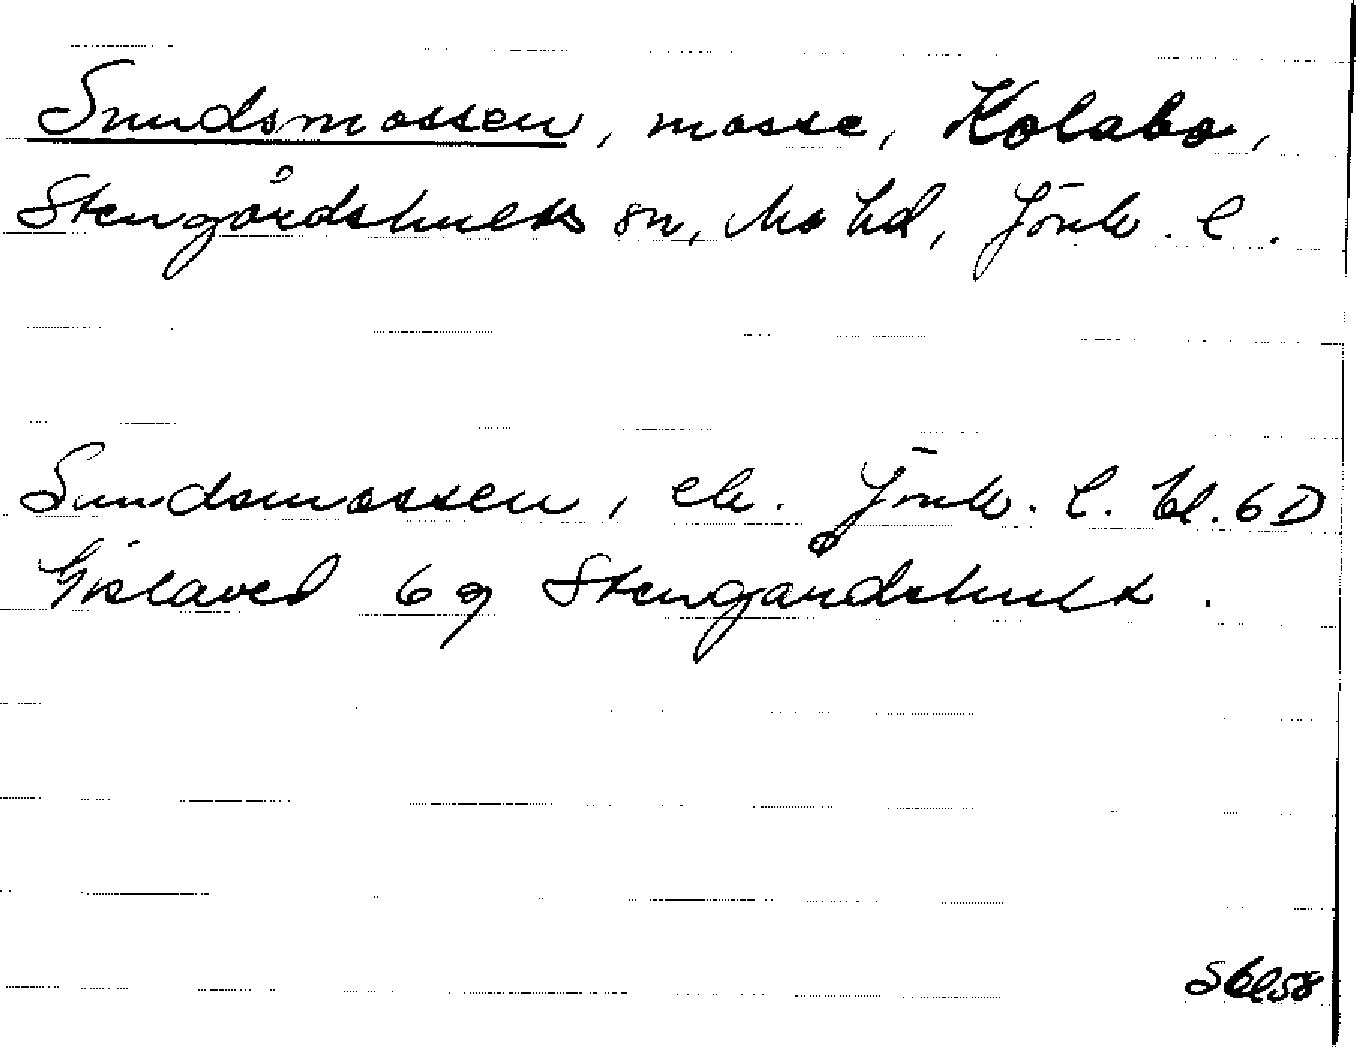 Sundsmossen, mosse, Kolabo,
Stengårdshults sn, Mo hd, Jönk. l.
Sundsmossen, ek. Jönk. l. bl. 6 D
Gislaved 6 g Stengårdshult.